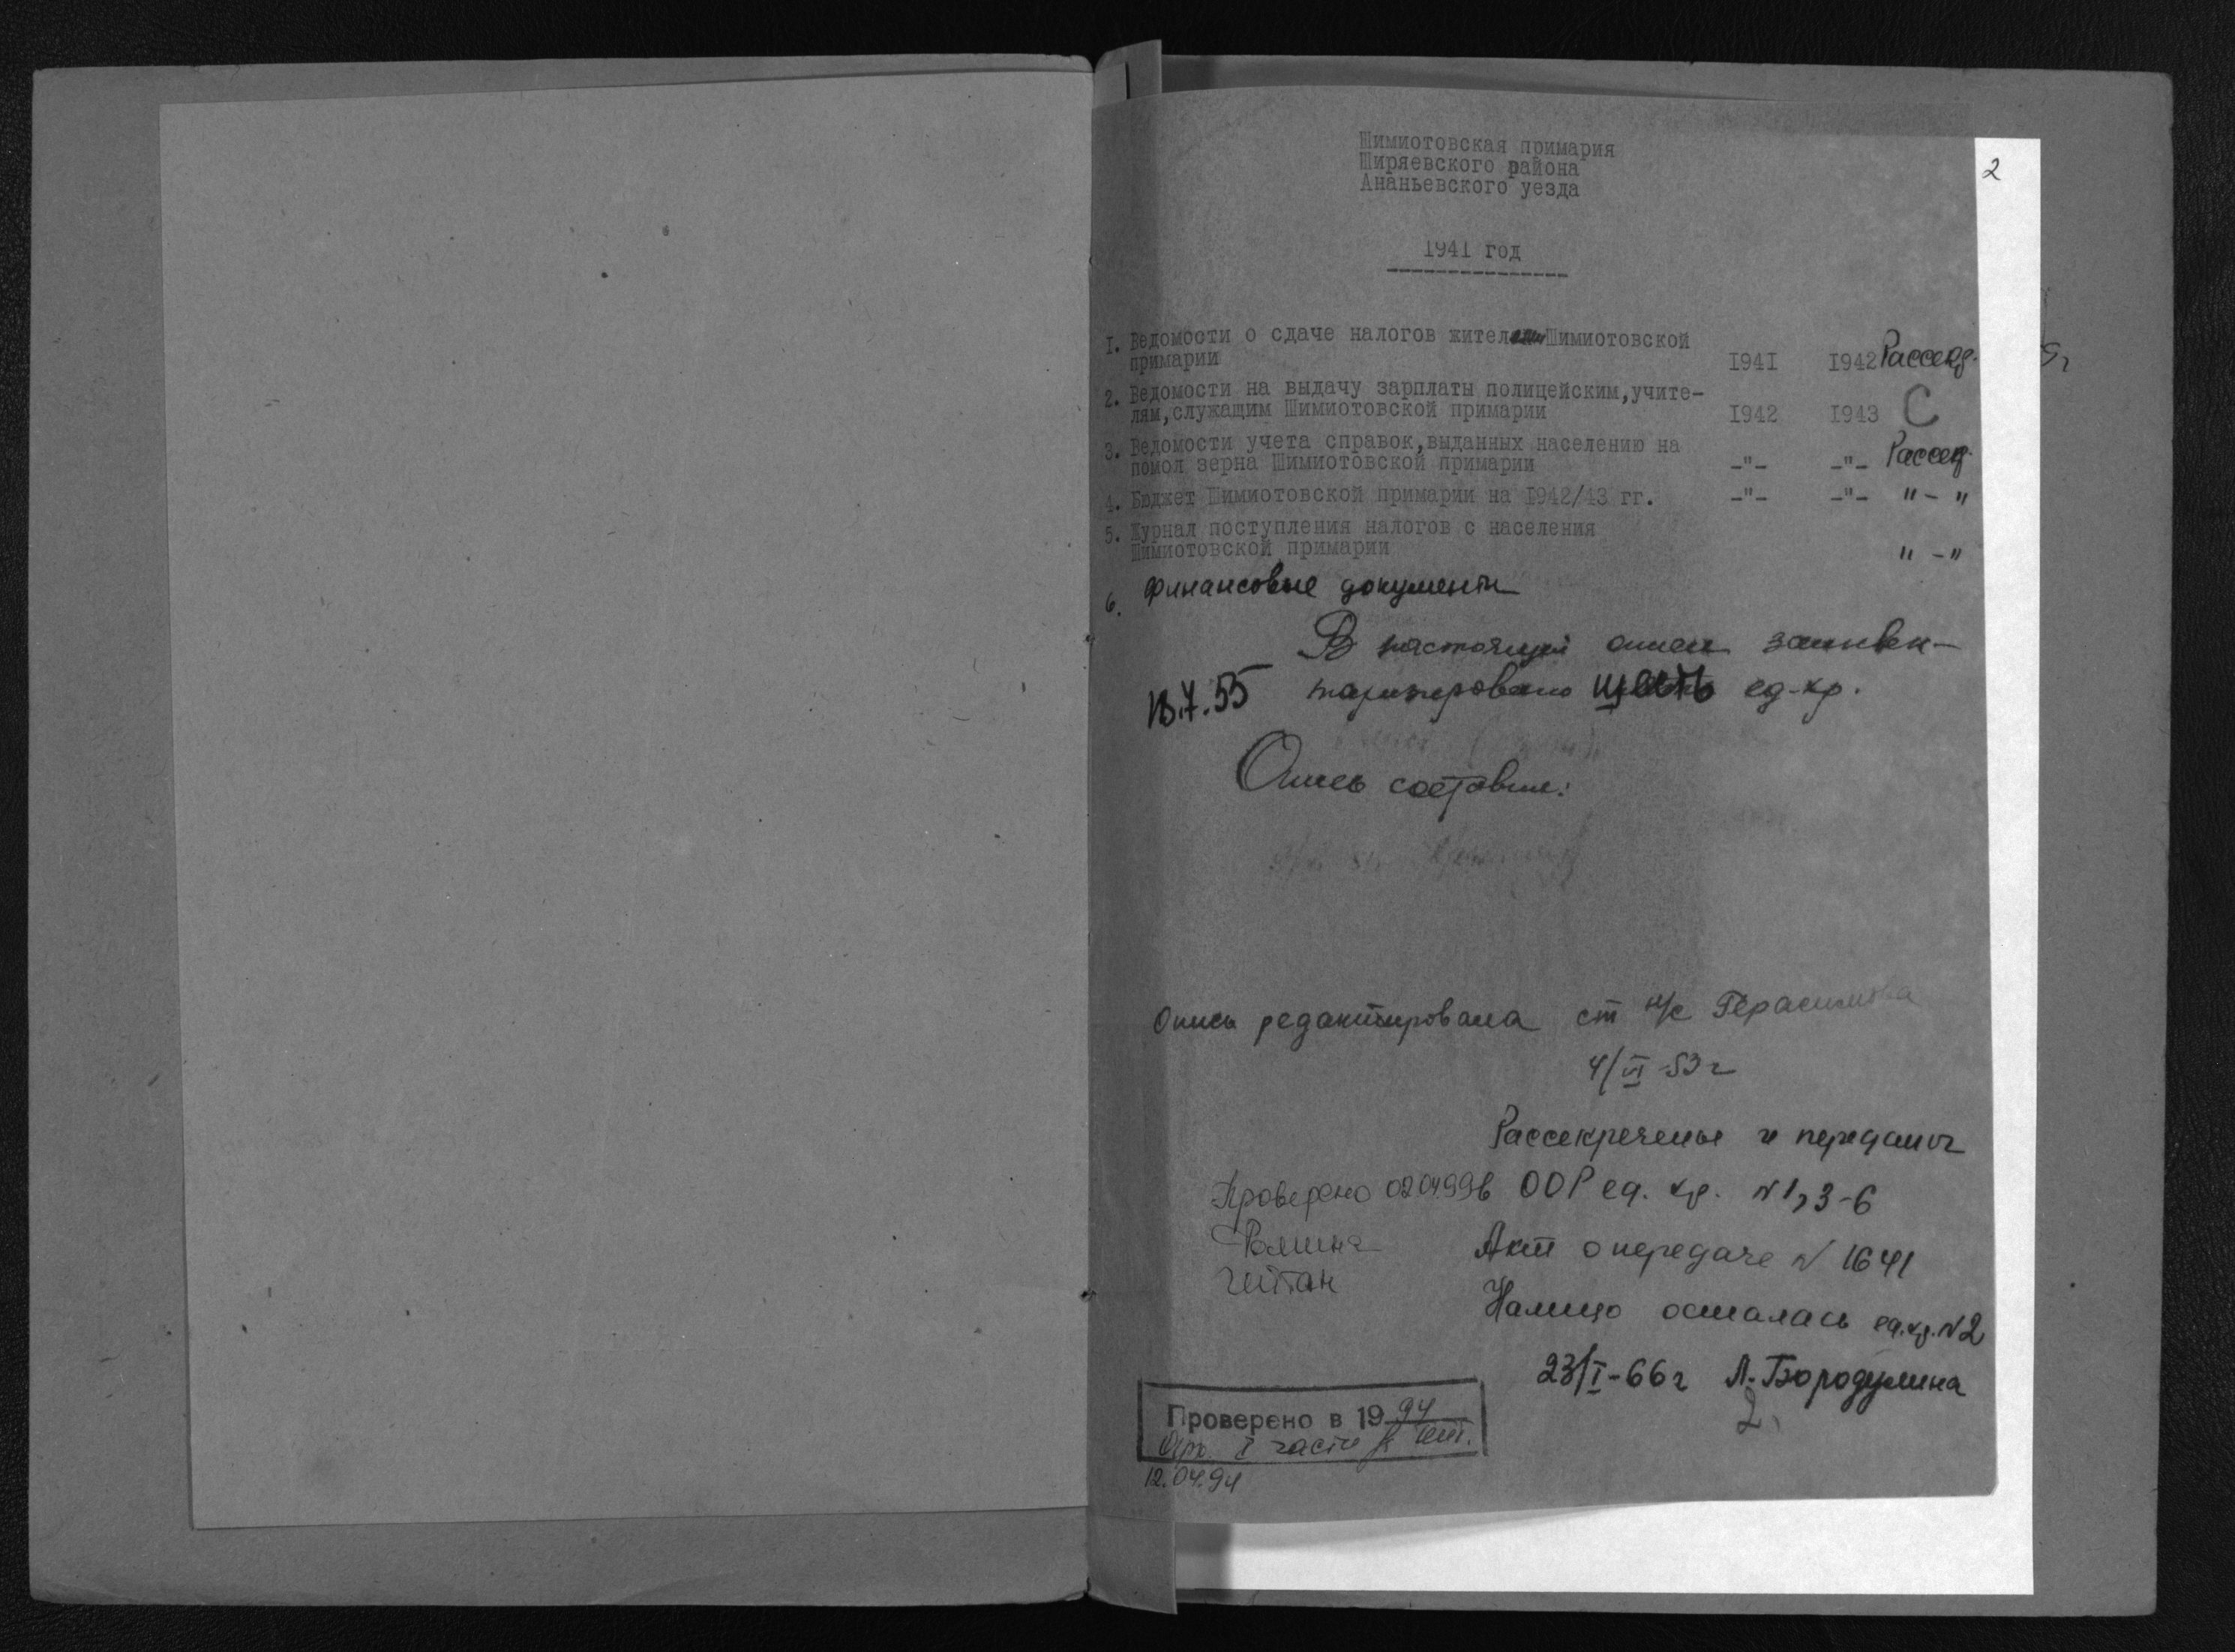 2
Шимиотовская примария
Ширяевского района
Ананьевского уезда
1941 год
1. Ведомости о сдаче налогов жителями Шимиотовской
примарии 1941 1942 Рассекр.
2. Ведомости на выдачу зарплаты полицейским,учите-
лям,служащим Шимиотовской примарии 1942 1943 С
3. Ведомости учета справок,выданных населению на
помол зерна Шимиотовской примарии -"- -"- Рассекр.
4. Бюджет Шимиотовской примарии на 1942/43 гг. -"- -"- " - "
5. Журнал поступления налогов с населения
Шимиотовской примарии " - "
6. Финансовые документы
В настоящей описи заинвен-
таризировано шесть ед.хр.
18.7.55
Опись составил:
Опись редактирована ст н/с Герасимова
4/VI-53г
Рассекречены и переданы
в ООР ед. хр. №1,3-6
Акт о передаче №1641
Налицо осталась ед.хр.№2
23/I-66г Л.Бородулина
2
Проверено 020499
Проверено в 1994
12.04.94